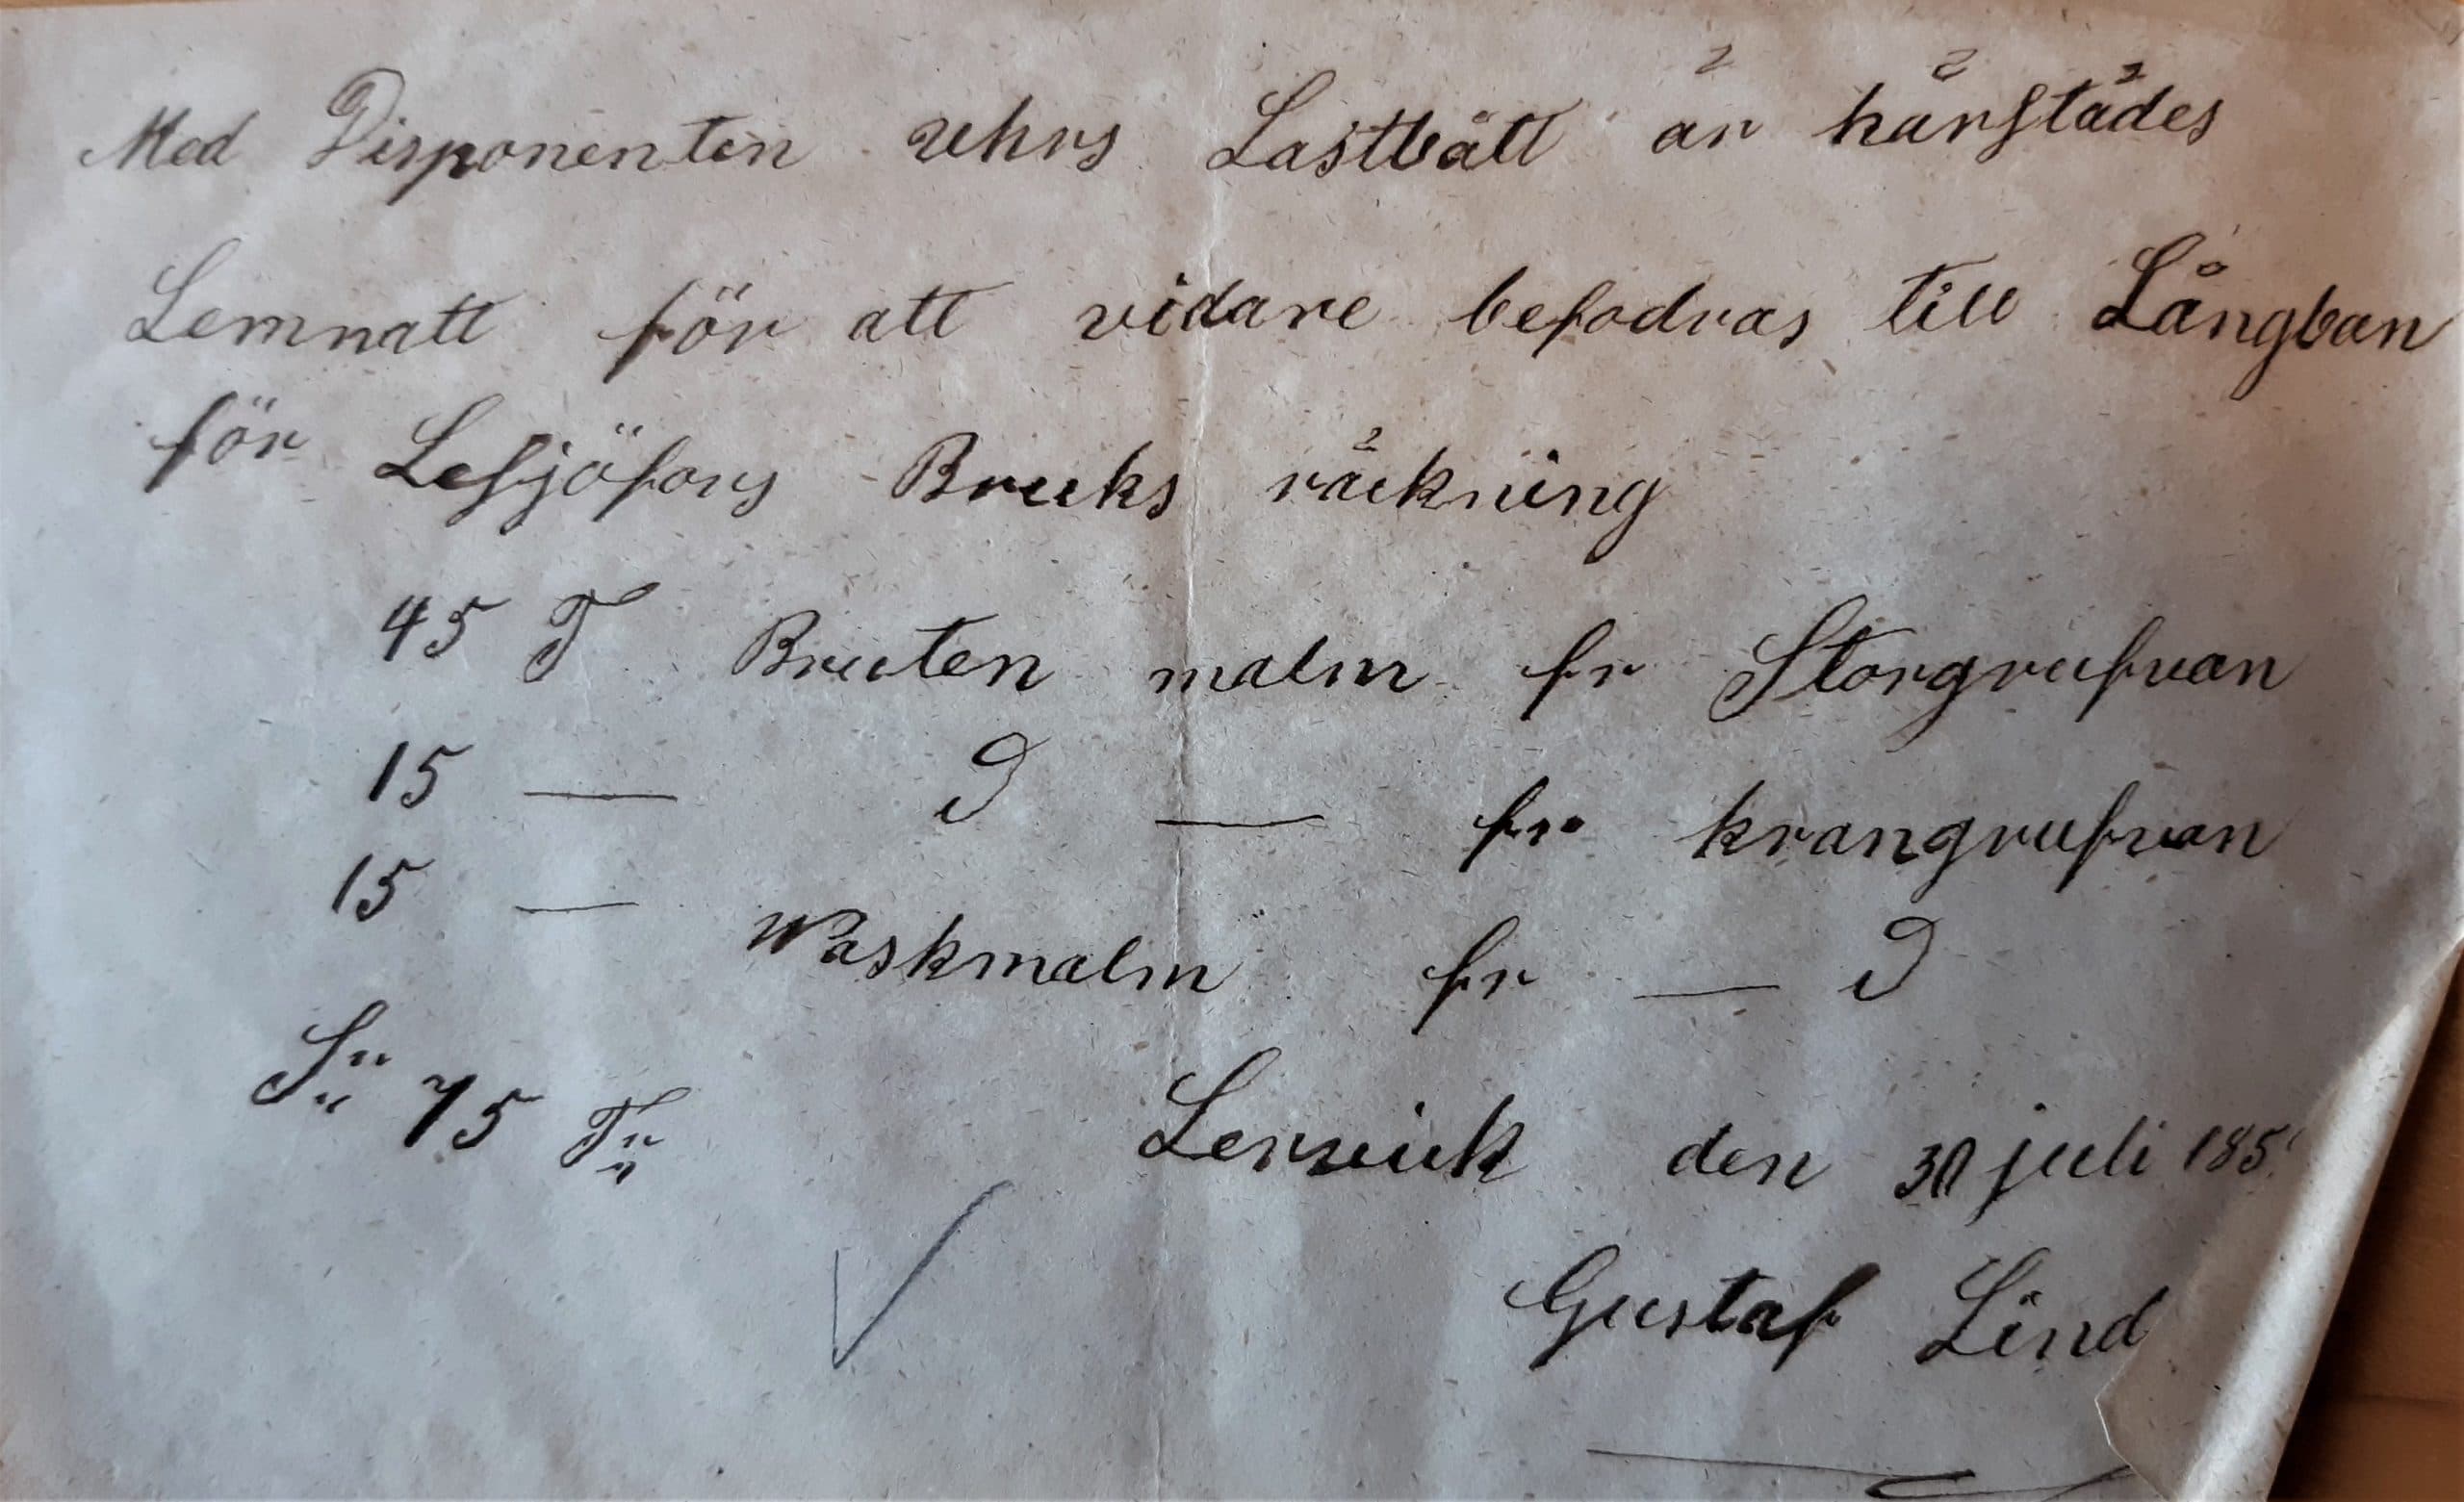 Med Disponenten uhrs Lastbått är härstädes
Lemnatt för att vidare befodras till Långban
för Lesjöfors Bruks räckning
45 T Bruten malm fr Storgrufvan
15 — D — fr krangrufvan
15 — Waskmalm fr — D
S:a 75 T:r
Lervik den 30 juli 185
Gustaf Lind